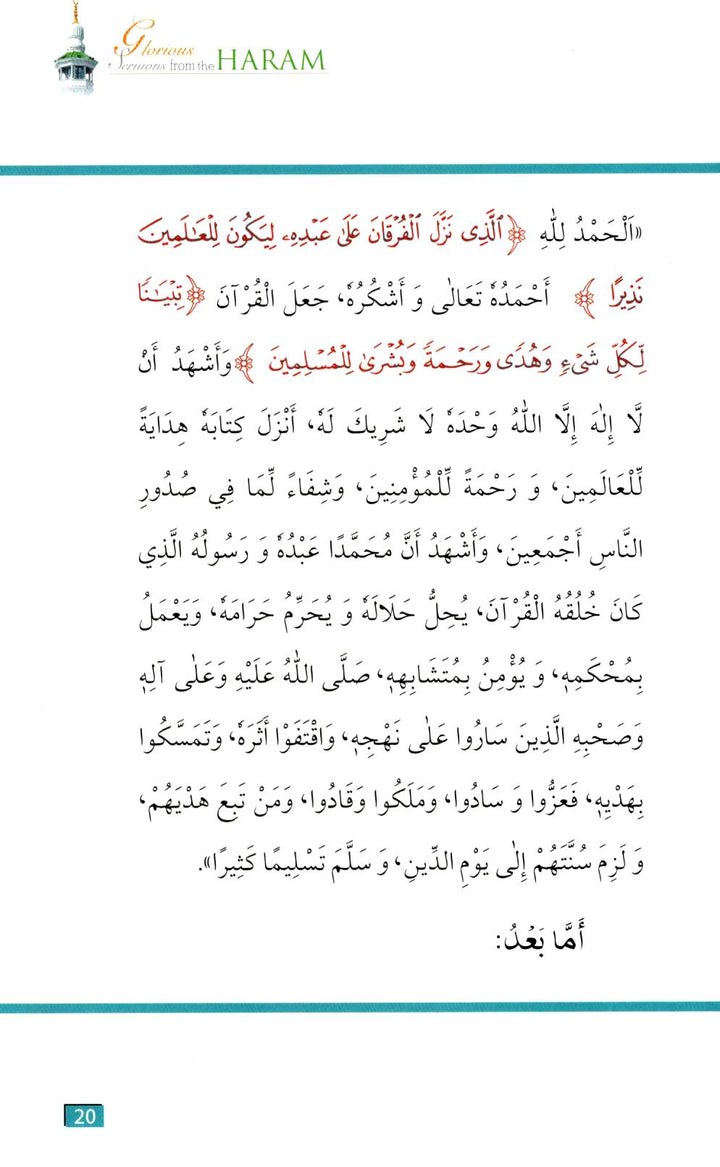 Glorious
Sermons from the HARAM
«اَلْحَمْدُ لِلّٰهِ ﴿ٱلَّذِى نَزَّلَ ٱلْفُرْقَانَ عَلَىٰ عَبْدِهِۦ لِيَكُونَ لِلْعَـٰلَمِينَ
نَذِيرًا﴾ أَحْمَدُهٗ تَعَالٰى وَ أَشْكُرُهٗ، جَعَلَ الْقُرْآنَ ﴿تِبْيَـٰنًا
لِّكُلِّ شَىْءٍ وَهُدًى وَرَحْمَةً وَبُشْرَىٰ لِلْمُسْلِمِينَ﴾ وَأَشْهَدُ أَنْ
لَّا إِلٰهَ إِلَّا اللّٰهُ وَحْدَهٗ لَا شَرِيكَ لَهٗ، أَنْزَلَ كِتَابَهٗ هِدَايَةً
لِّلْعَالَمِينَ، وَ رَحْمَةً لِّلْمُؤْمِنِينَ، وَشِفَاءً لِّمَا فِي صُدُورِ
النَّاسِ أَجْمَعِينَ، وَأَشْهَدُ أَنَّ مُحَمَّدًا عَبْدُهٗ وَ رَسُولُهُ الَّذِي
كَانَ خُلُقُهُ الْقُرْآنَ، يُحِلُّ حَلَالَهٗ وَ يُحَرِّمُ حَرَامَهٗ، وَيَعْمَلُ
بِمُحْكَمِهٖ، وَ يُؤْمِنُ بِمُتَشَابِهِهٖ، صَلَّى اللّٰهُ عَلَيْهِ وَعَلٰى آلِهٖ
وَصَحْبِهِ الَّذِينَ سَارُوا عَلٰى نَهْجِهٖ، وَاقْتَفَوْا أَثَرَهٗ، وَتَمَسَّكُوا
بِهَدْيِهٖ، فَعَزُّوا وَ سَادُوا، وَمَلَكُوا وَقَادُوا، وَمَنْ تَبِعَ هَدْيَهُمْ،
وَ لَزِمَ سُنَّتَهُمْ إِلٰى يَوْمِ الدِّينِ، وَ سَلَّمَ تَسْلِيمًا كَثِيرًا».
أَمَّا بَعْدُ:
20